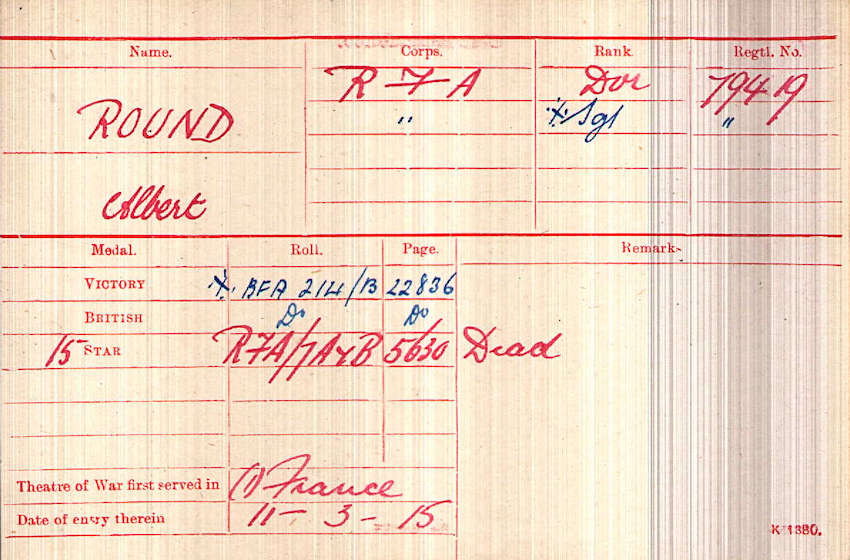 Name. Corps. Rank. Regtl. No.
R F A Dvr 79419
ROUND " Sgt "
Albert
Medal. Roll. Page. Remarks
VICTORY RFA 214/B 22836
BRITISH Do Do
15 STAR RFA/7A & B 5630 Dead
Theatre of War first served in (1) France
Date of entry therein 11 - 3 - 15
K 1380.